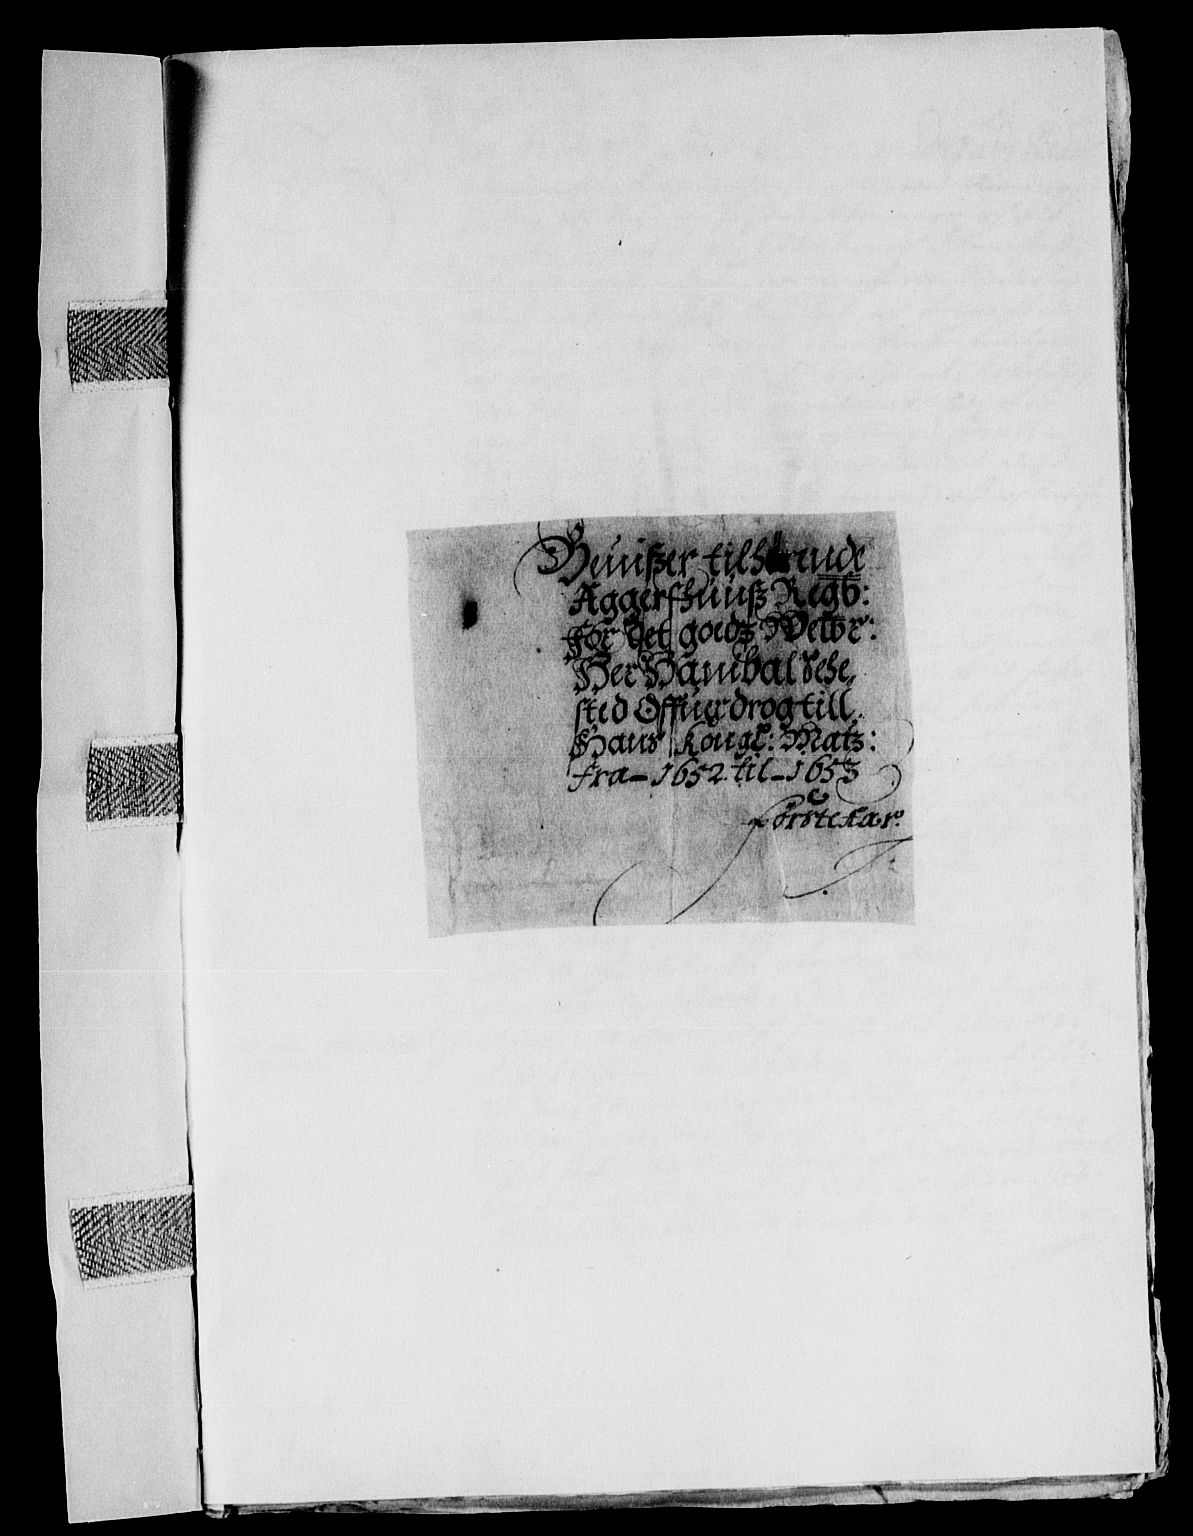 Beuißer tilhørende
Aggerßhuuß Regb:
For det goedz Welbr:
Her Hanibal Sehe,
sted Offuerdrog till
Hans Kongl: Matz:
fra - 1652 til - 1653